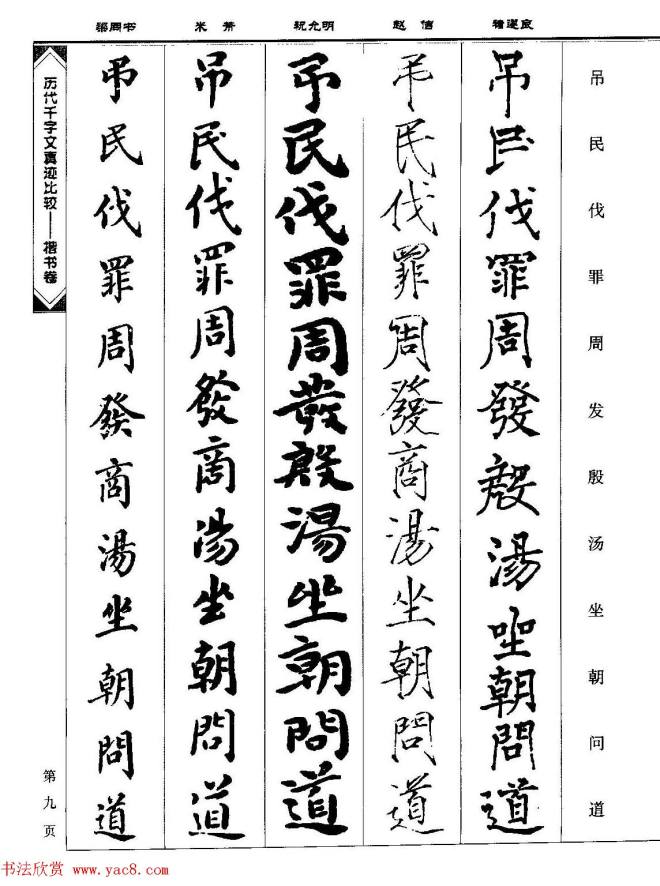 吊民伐罪周发殷汤坐朝问道
褚遂良
吊民伐罪周發殷湯坐朝問道
赵佶
弔民伐罪周發商湯坐朝問道
祝允明
弔民伐罪周發殷湯坐朝問道
米芾
吊民伐罪周發商湯坐朝問道
梁同书
弔民伐罪周發商湯坐朝問道
历代千字文真迹比较——楷书卷
第九页
书法欣赏 www.yac8.com